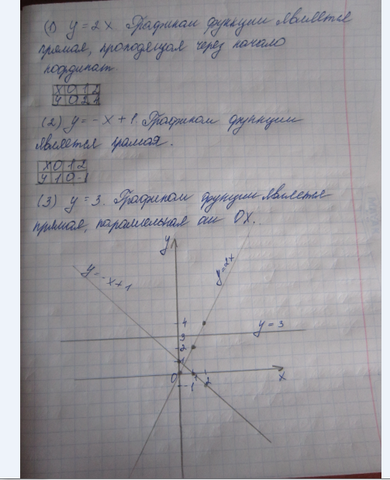 (1) y = 2x. Графиком функции является
прямая, проходящая через начало
координат.
x 0 1 2
y 0 2 4
(2) y = -x + 1. Графиком функции
является прямая.
x 0 1 2
y 1 0 -1
(3) y = 3. Графиком функции является
прямая, параллельная оси OX.
y
y = -x + 1
y = 2x
4
y = 3
3
2
1
0 1 2 x
-1